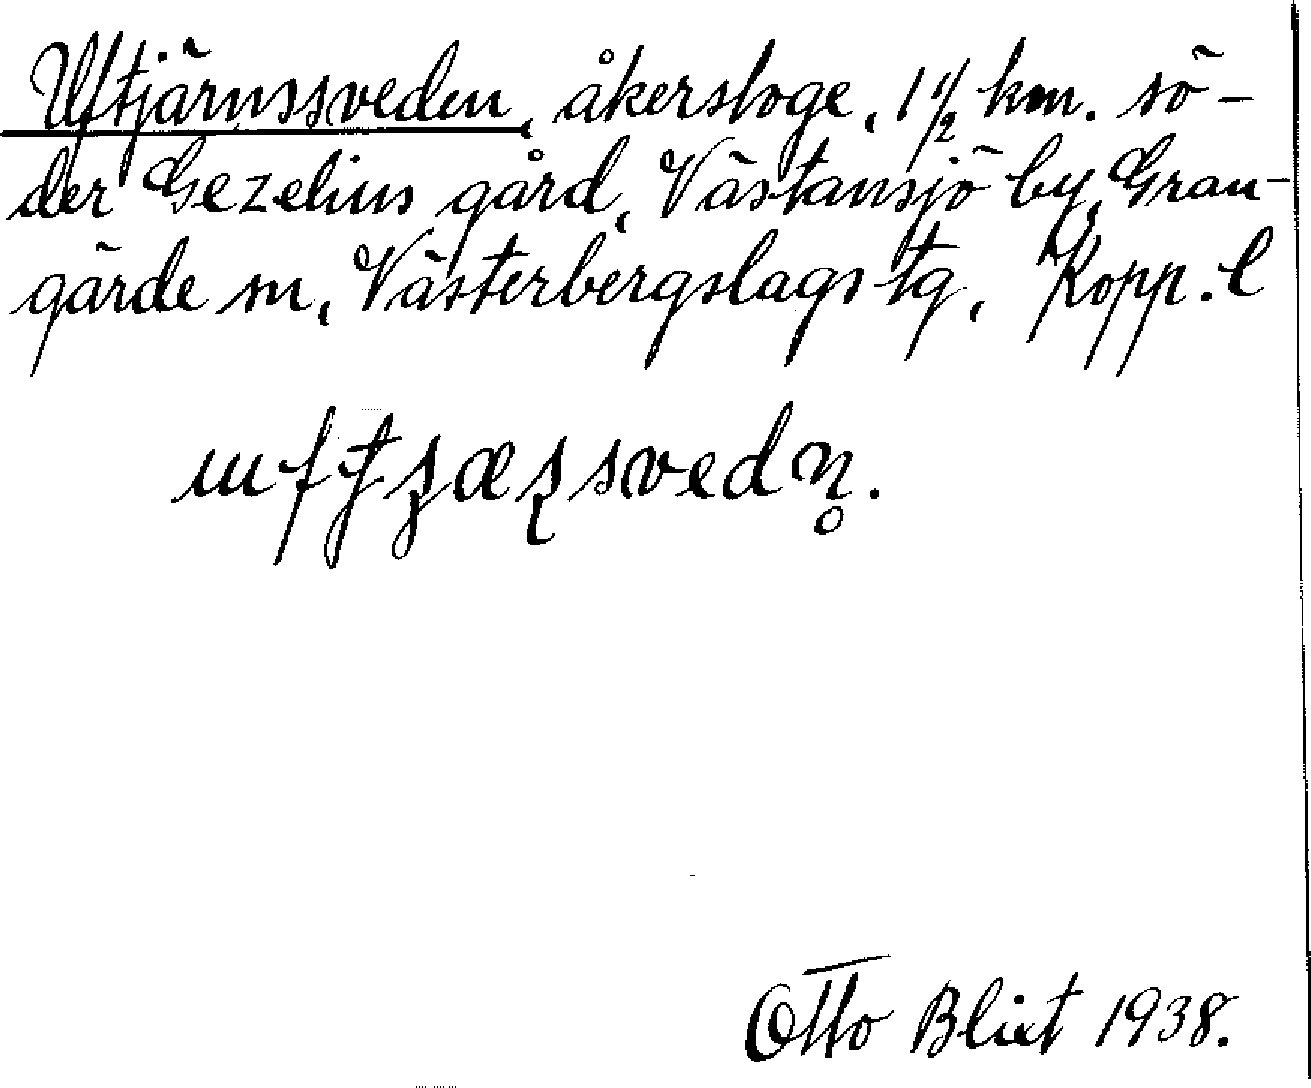 Uftjärnssveden, åkersloge, 1 1/2 km. sö-
der Gezelius gård, Västansjö by, Gran-
gärde sn, Västerbergslags tg, Kopp. l
Otto Blixt 1938.